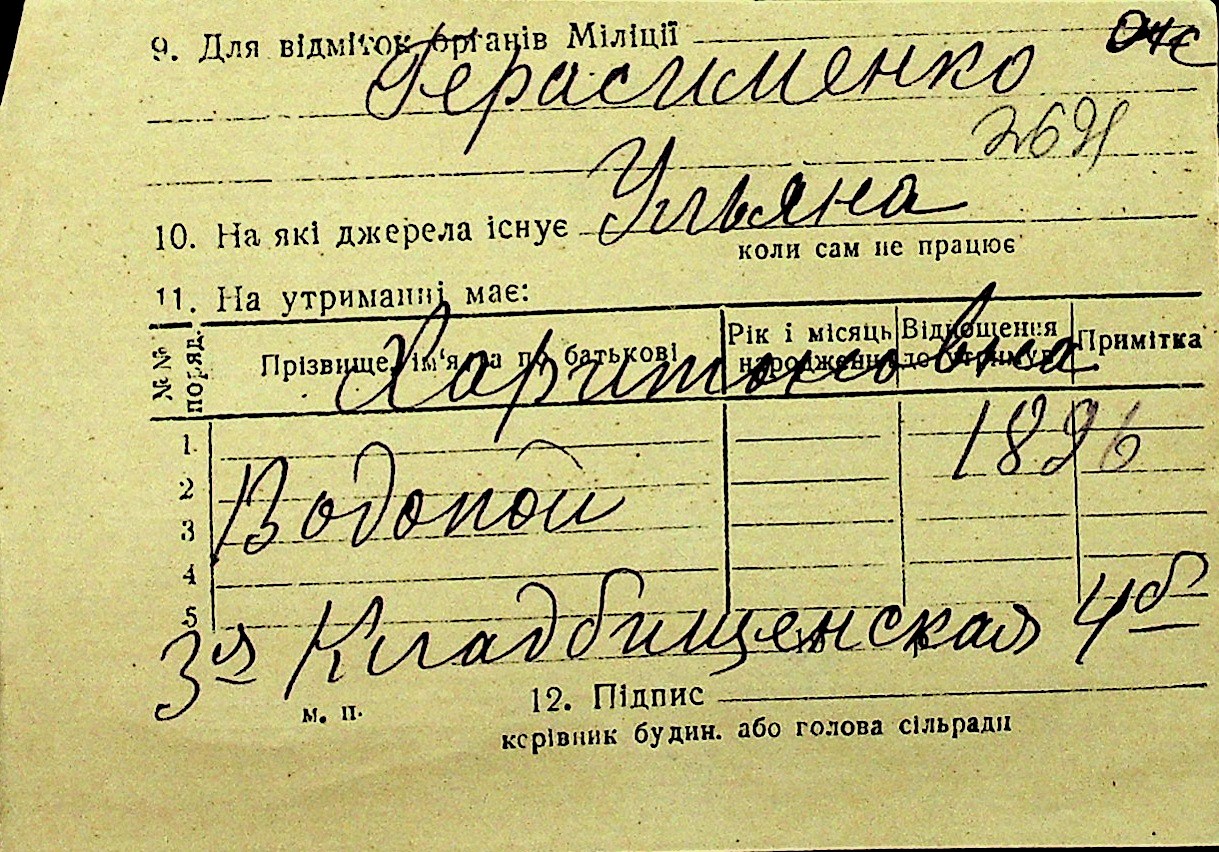 9. Для відміток органів Міліції
Герасименко
10. На які джерела існує Ульяна
коли сам не працює
11. На утриманні має:
№ № поряд. Прізвище, ім'я та по батькові Рік і місяць народження Відношення до утримув. Примітка
Харитоновна
1 1896
2 Водопой
3
4
5
3я Кладбищенская 4б
м. п. 12. Підпис
керівник будин. або голова сільради